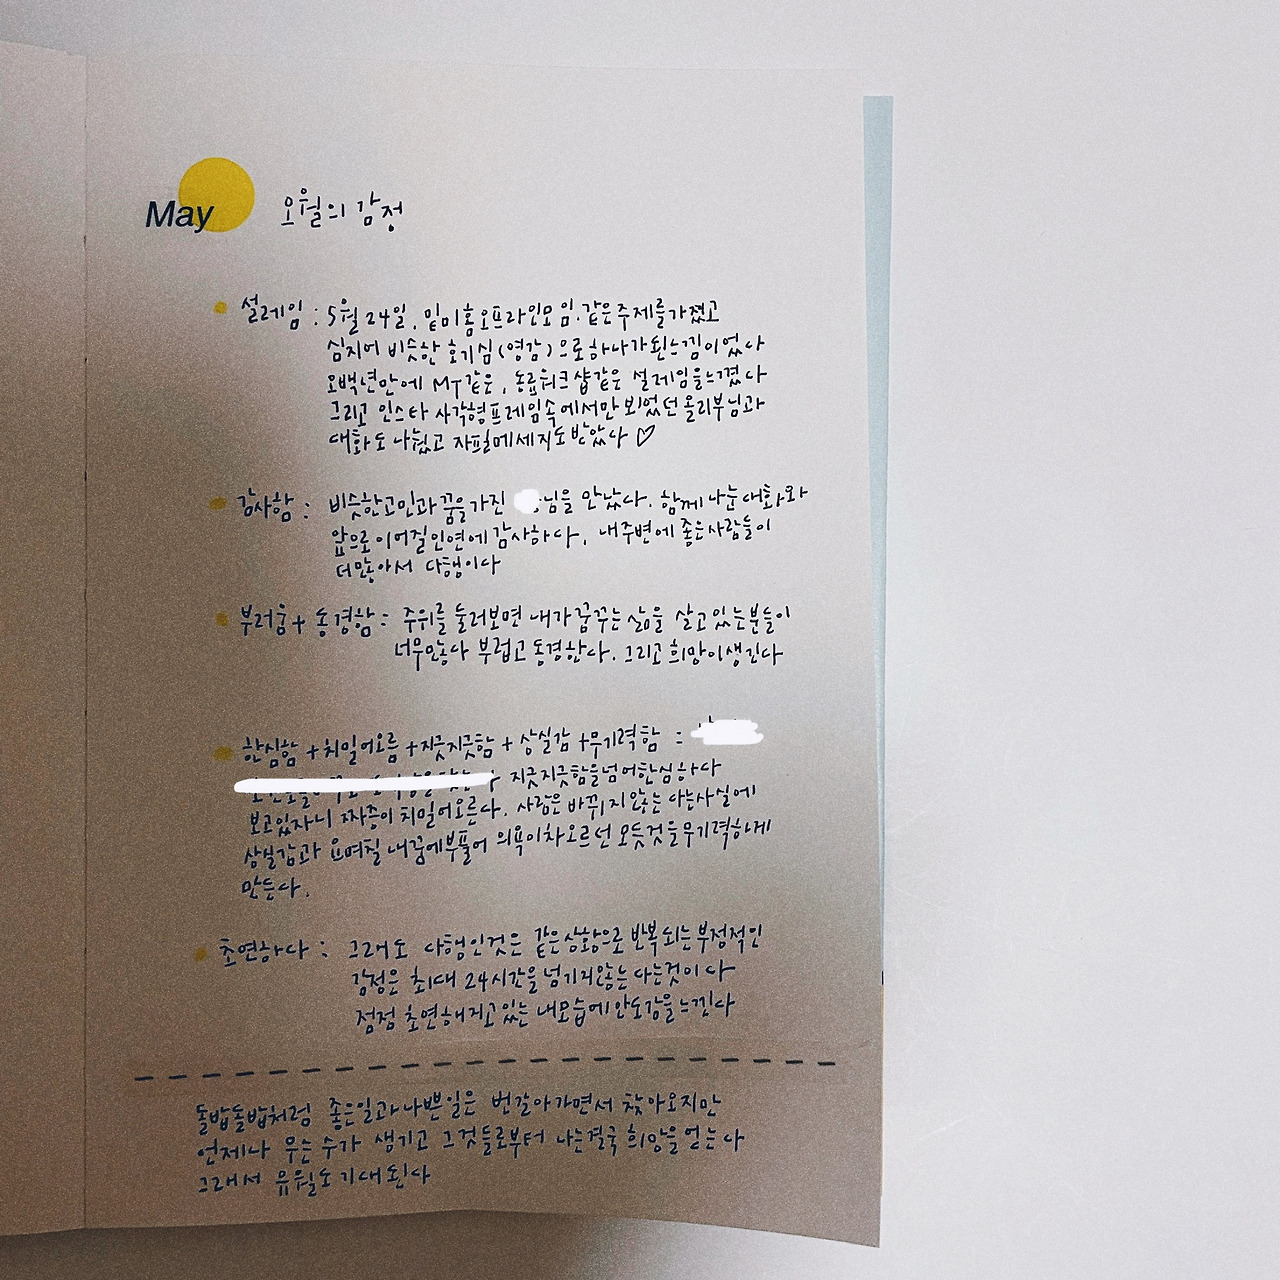 May 오월의 감정
설레임 : 5월 24일. 밑미홈오프라인모임. 같은주제를가졌고
심지어 비슷한 호기심(영감)으로하나가된느낌이었다
오백년만에 MT같은, 동료워크샵같은 설레임을느꼈다
그리고 인스타 사각형프레임속에서만 보았던 올리부님과
대화도 나눴고 자필메세지도받았다♡
감사함 : 비슷한고민과 꿈을가진 님을 만났다. 함께 나눈대화와
앞으로이어질인연에감사하다. 내주변에 좋은사람들이
더많아서 다행이다
부러움 + 동경함 : 주위를 둘러보면 내가꿈꾸는 삶을 살고있는분들이
너무많다 부럽고 동경한다. 그리고 희망이생긴다
한심함 + 치밀어오름 + 지긋지긋함 + 상실감 + 무기력함 :
지긋지긋함을넘어한심하다
보고있자니 짜증이 치밀어오른다. 사람은 바뀌지않는다는사실에
상실감과 요며칠 내꿈에부풀어 의욕이차오르던 모든것을무기력하게
만든다.
초연하다 : 그래도 다행인것은 같은상황으로 반복되는부정적인
감정은 최대 24시간을넘기지않는다는것이다
점점 초연해지고있는 내모습에안도감을느낀다
돌밥돌밥처럼 좋은일과나쁜일은 번갈아가면서 찾아오지만
언제나 무슨 수가 생기고 그것들로부터 나는결국 희망을얻는다
그래서 유월도기대된다